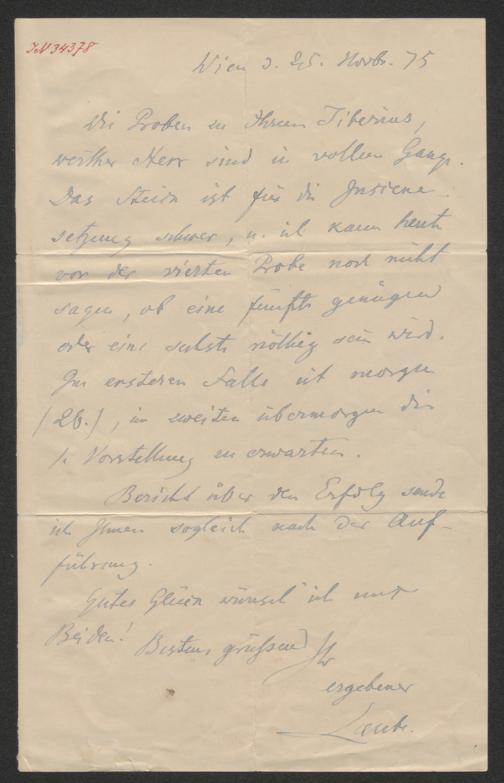 JN 34378
Wien d. 25. Novbr. 75
Die Proben zu Ihrem Tiberius,
werther Herr sind in vollem Gange.
Das Stück ist für die Inscene-
setzung schwer, u. ich kann heute
vor der vierten Probe noch nicht
sagen, ob eine fünfte genügen
oder eine sechste nöthig sein wird.
Im ersteren Falle ist morgen
(26.), im zweiten übermorgen die
1. Vorstellung zu erwarten.
Bericht über den Erfolg sende
ich Ihnen sogleich nach der Auf-
führung.
Gutes Glück wünsch' ich uns
Beiden!
Bestens grüßend Ihr
ergebener
Laube.